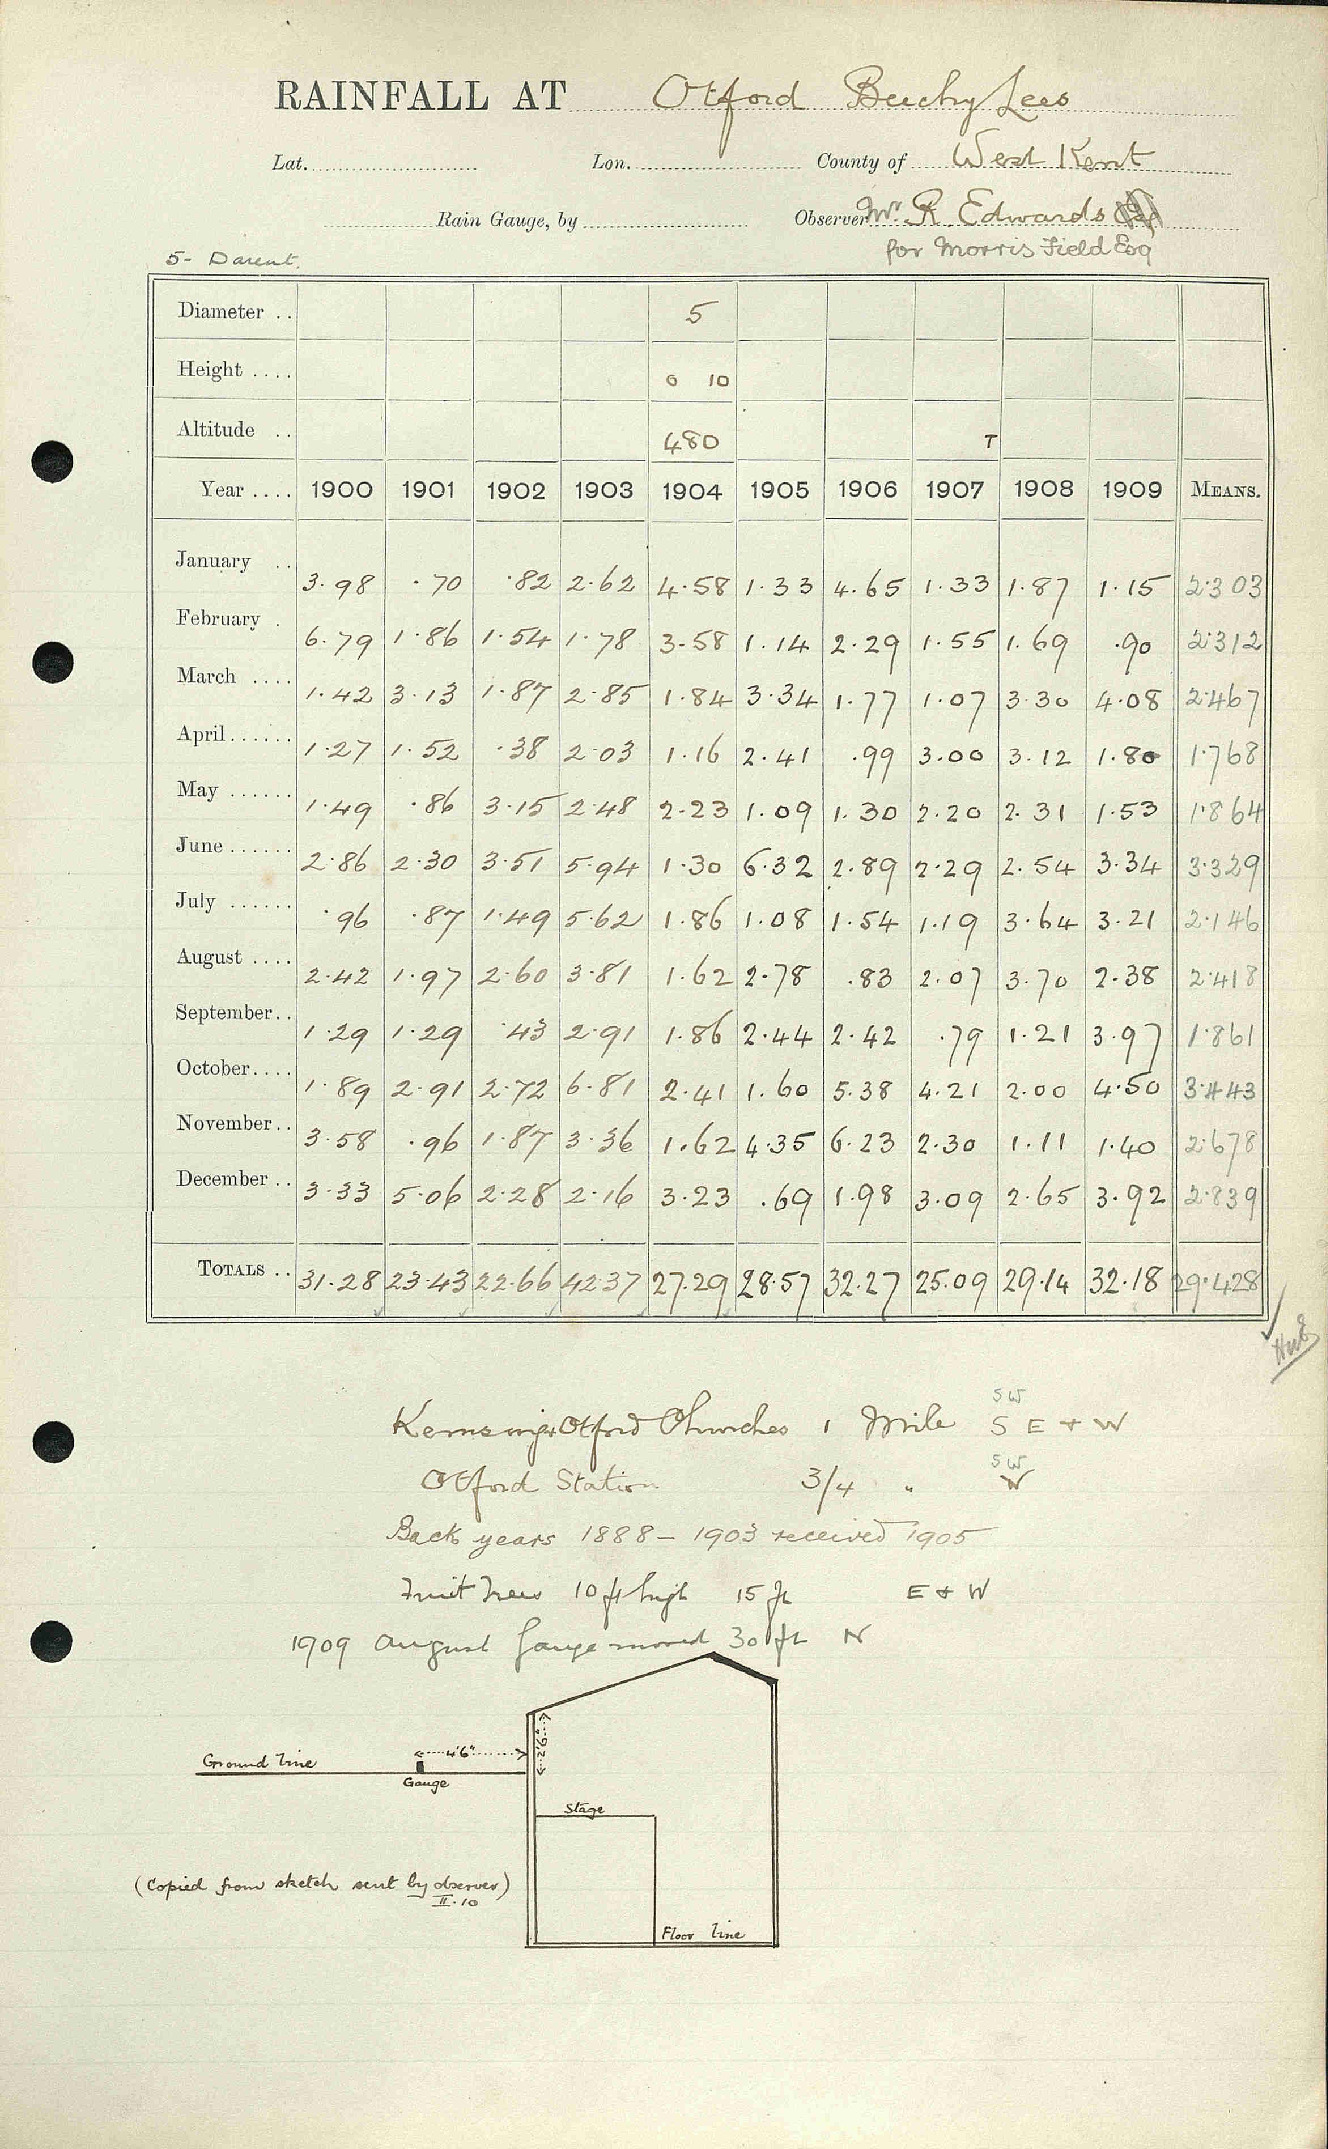 RAINFALL AT Otford Beechy Lees
Lat. Lon. County of West Kent
Rain Gauge, by Observer Mr. R. Edwards
for Morris Field Esq
5- Darent.
Diameter .. 5
Height .... 0 10
Altitude .. 480 T
Year .... 1900 1901 1902 1903 1904 1905 1906 1907 1908 1909 MEANS.
January .. 3.98 .70 .82 2.62 4.58 1.33 4.65 1.33 1.87 1.15 2.303
February . 6.79 1.86 1.54 1.78 3.58 1.14 2.29 1.55 1.69 .90 2.312
March .... 1.42 3.13 1.87 2.85 1.84 3.34 1.77 1.07 3.30 4.08 2.467
April...... 1.27 1.52 .38 2.03 1.16 2.41 .99 3.00 3.12 1.80 1.768
May ...... 1.49 .86 3.15 2.48 2.23 1.09 1.30 2.20 2.31 1.53 1.864
June ...... 2.86 2.30 3.51 5.94 1.30 6.32 2.89 2.29 2.54 3.34 3.329
July ...... .96 .87 1.49 5.62 1.86 1.08 1.54 1.19 3.64 3.21 2.146
August .... 2.42 1.97 2.60 3.81 1.62 2.78 .83 2.07 3.70 2.38 2.418
September.. 1.29 1.29 .43 2.91 1.86 2.44 2.42 .79 1.21 3.97 1.861
October.... 1.89 2.91 2.72 6.81 2.41 1.60 5.38 4.21 2.00 4.50 3.443
November.. 3.58 .96 1.87 3.36 1.62 4.35 6.23 2.30 1.11 1.40 2.678
December .. 3.33 5.06 2.28 2.16 3.23 .69 1.98 3.09 2.65 3.92 2.839
TOTALS .. 31.28 23.43 22.66 42.37 27.29 28.57 32.27 25.09 29.14 32.18 29.428
SW
Kemsing & Otford Churches 1 Mile S E & W
SW
Otford Station 3/4 " W
Back years 1888 - 1903 received 1905
Fruit Trees 10 ft high 15 ft E & W
1909 August Gauge moved 30 ft N
4'6"
2'6"
Ground line
Gauge
Stage
(Copied from sketch sent by observer)
II.10
Floor line